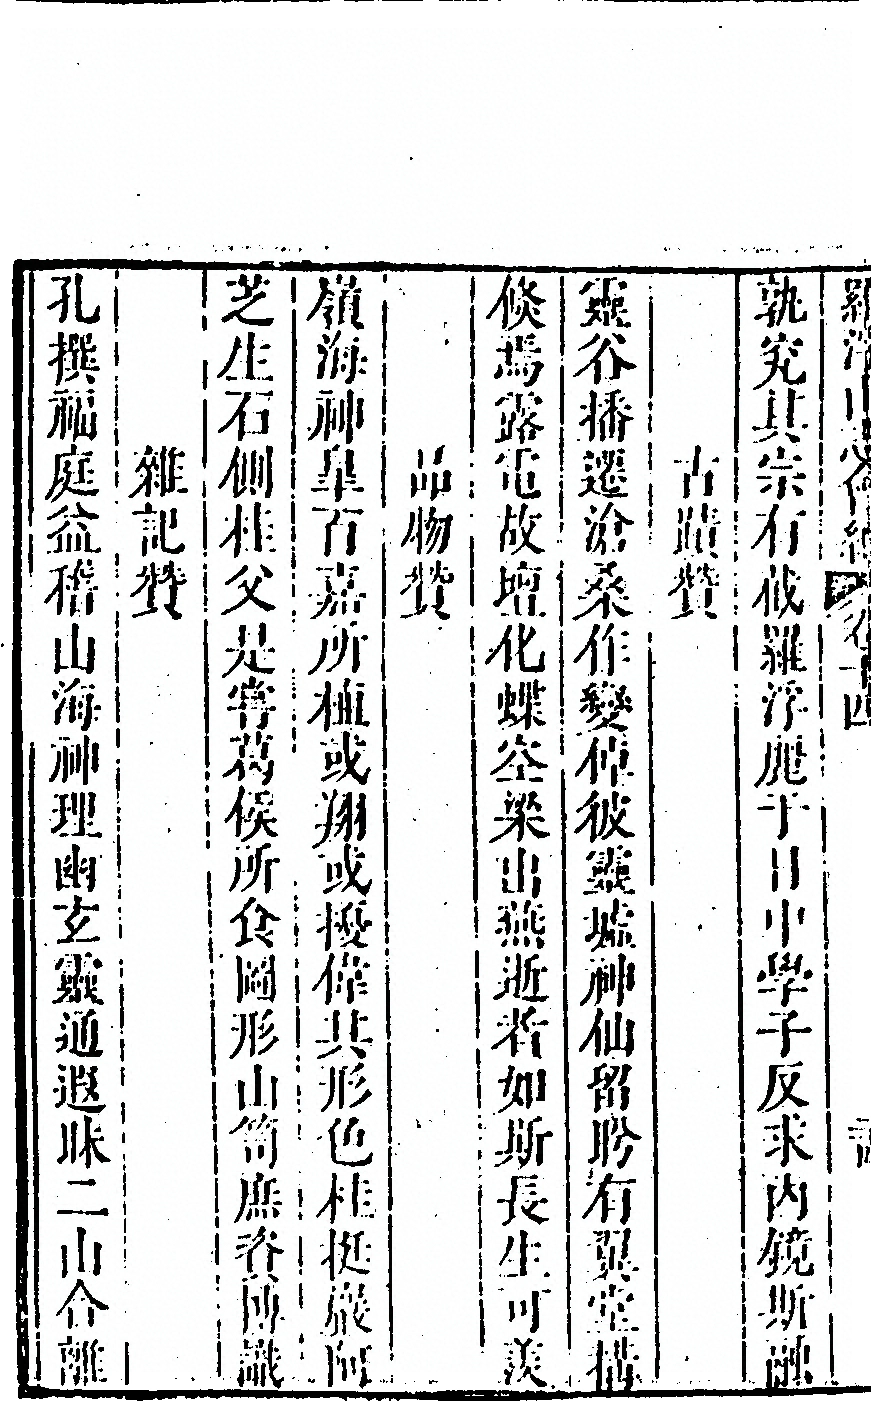 羅浮山志會編卷十四
孰究其宗有截羅浮麗于日中學子反求內鏡斯融
古蹟贊
靈谷播遷滄桑作變倬彼靈墟神仙留盻有翼堂構
倏焉露電故壇化蝶空梁出燕逝者如斯長生可羨
品物贊
嶺海神皐百嘉所植或翔或擾偉其形色桂挺巖阿
芝生石側桂父是嘗葛侯所食圖形山笥庶資博識
雜記贊
孔撰福庭益稽山海神理幽玄靈通遐昧二山合離